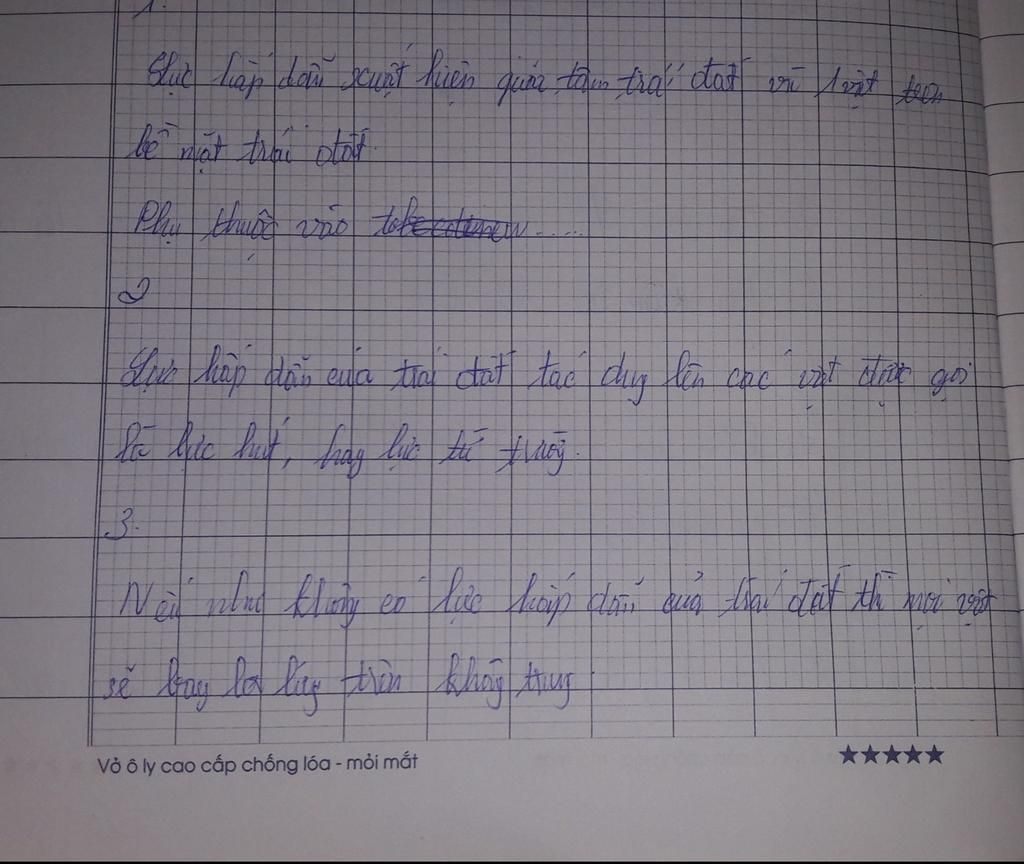 1.
Lực hấp dẫn xuất hiện giữa tâm trái đất và 1 vật trên
bề mặt trái đất.
Phụ thuộc vào .....
2
Lực hấp dẫn của trái đất tác dụng lên các vật được gọi
là lực hút, hay lực từ trường.
3.
Nếu như không có lực hấp dẫn của trái đất thì mọi vật
sẽ bay lơ lửng trên không trung.
Vở ô ly cao cấp chống lóa - mỏi mắt ★★★★★